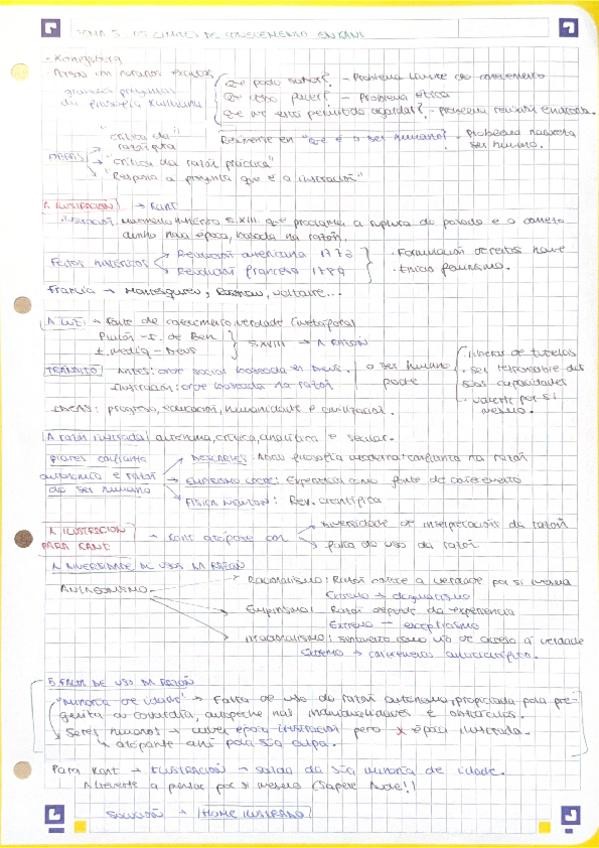 TEMA 5. OS LÍMITES DO COÑECEMENTO EN KANT
- Königsberg
grandes preguntas
da filosofía Kantiana
Que podo saber? - Problema límite do coñecemento
Que debo facer? - Problema ético
Que me está permitido agardar? - problema relixión
Resúmense en "Que é o ser humano?" - Problema natureza
ser humano.
OBRAS
"Crítica da
razón pura"
"Crítica da razón práctica"
"Resposta a pregunta que é a ilustración"
A ILUSTRACIÓN → KANT
Ilustración, movemento S.XVIII que proclama a ruptura do pasado e o comezo
dunha nova época, baseada na razón.
Feitos históricos
Revolución americana
Revolución francesa 1789
- Formulación dereitos home
- Inicio feminismo.
Francia → Montesquieu, Rousseau, Voltaire...
A LUZ: → fonte de coñecemento, verdade (metáfora)
Platón - I. de Ben
I. media - Deus
S.XVIII → A RAZÓN
TRÁNSITO
Antes: orde social baseada en Deus.
Ilustración: orde baseada na razón
o ser humano
pode
liberar de tutelas
ser responsable das
súas capacidades
valerse por si
mesmo.
IDEAS: progreso, educación, humanidade e civilización.
A razón ilustrada: autónoma, crítica, analítica e secular.
confianza
autonomía e razón
do ser humano
DESCARTES: Nova filosofía moderna: confianza na razón
EMPIRISMO LOCKE: Experiencia como fonte de coñecemento
FÍSICA NEWTON: Rev. científica
A ILUSTRACIÓN
PARA KANT
→ Kant atópase con
diversidade de interpretacións da razón
falta de uso da razón
A. DIVERSIDADE DE USOS DA RAZÓN
ANTAGONISMO
Racionalismo: Razón coñece a verdade por si mesma
Extremo → dogmatismo
Empirismo: Razón depende da experiencia
Extremo → escepticismo
Irracionalismo: sentimento como vía de acceso á verdade
Extremo → coñecemento
B. FALTA DE USO DA RAZÓN
"Minoría de idade" → Falta de uso da razón autónoma, propiciada pola
preguiza e covardía,
Seres humanos → época ILUSTRACIÓN pero X época ilustrada.
atópanse aní pola súa culpa.
Para Kant → ILUSTRACIÓN → saída da súa minoría de idade.
Atreverse a pensar por si mesmo (Sapere Aude!!)
SOLUCIÓN → HOME ILUSTRADO